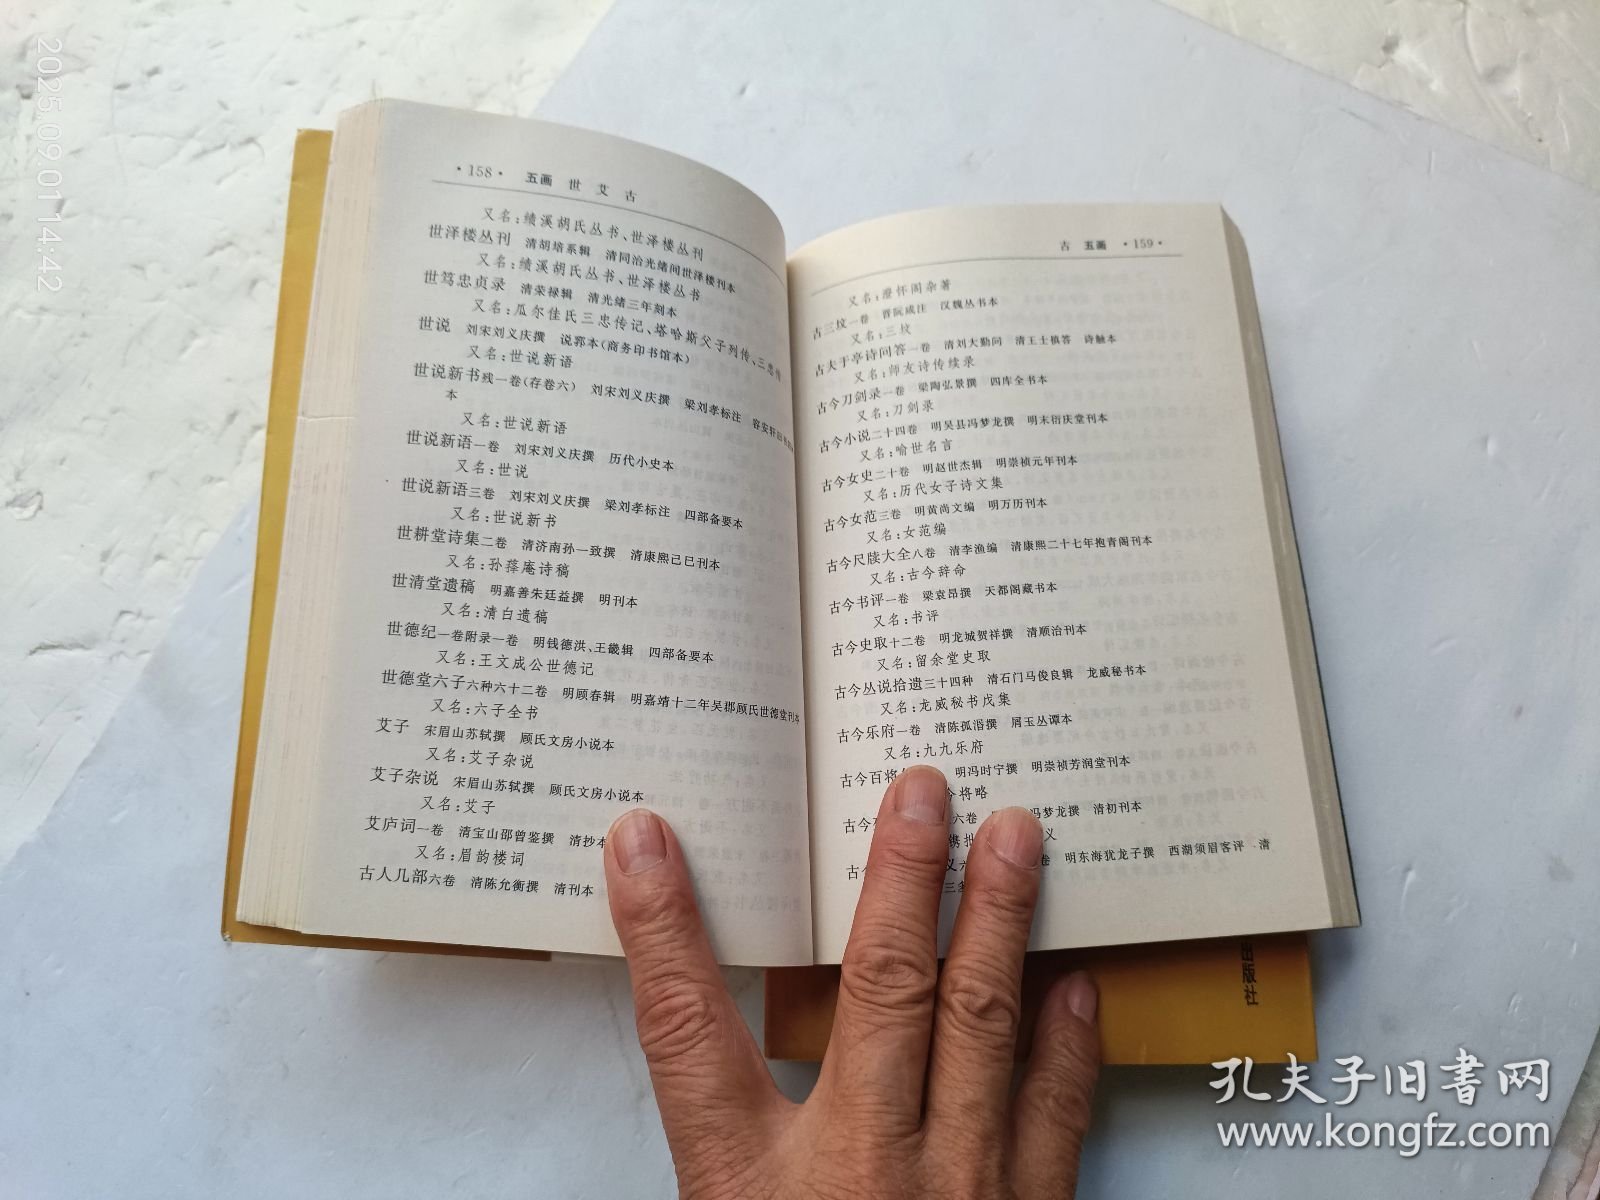 2025.09.01 14:42
·158· 五画 世 艾 古
又名:绩溪胡氏丛书、世泽楼丛刊
世泽楼丛刊 清胡培系辑 清同治光绪间世泽楼刊本
又名:绩溪胡氏丛书、世泽楼丛书
世笃忠贞录 清荣禄辑 清光绪三年刻本
又名:瓜尔佳氏三忠传记、塔哈斯父子列传、三忠传
世说 刘宋刘义庆撰 说郛本(商务印书馆本)
又名:世说新语
世说新书残一卷(存卷六) 刘宋刘义庆撰 梁刘孝标注 容安轩旧书
本
又名:世说新语
世说新语一卷 刘宋刘义庆撰 历代小史本
又名:世说
世说新语三卷 刘宋刘义庆撰 梁刘孝标注 四部备要本
又名:世说新书
世耕堂诗集二卷 清济南孙一致撰 清康熙己巳刊本
又名:孙蕼庵诗稿
世清堂遗稿 明嘉善朱廷益撰 明刊本
又名:清白遗稿
世德纪一卷附录一卷 明钱德洪、王畿辑 四部备要本
又名:王文成公世德记
世德堂六子六种六十二卷 明顾春辑 明嘉靖十二年吴郡顾氏世德堂刊本
又名:六子全书
艾子 宋眉山苏轼撰 顾氏文房小说本
又名:艾子杂说
艾子杂说 宋眉山苏轼撰 顾氏文房小说本
又名:艾子
艾庐词一卷 清宝山邵曾鉴撰 清抄本
又名:眉韵楼词
古人几部六卷 清陈允衡撰 清刊本
古 五画 ·159·
又名:澄怀阁杂著
古三坟一卷 晋阮咸注 汉魏丛书本
又名:三坟
古夫于亭诗问答一卷 清刘大勤问 清王士禛答 诗触本
又名:师友诗传续录
古今刀剑录一卷 梁陶弘景撰 四库全书本
又名:刀剑录
古今小说二十四卷 明吴县冯梦龙撰 明末衍庆堂刊本
又名:喻世名言
古今女史二十卷 明赵世杰辑 明崇祯元年刊本
又名:历代女子诗文集
古今女范三卷 明黄尚文编 明万历刊本
又名:女范编
古今尺牍大全八卷 清李渔编 清康熙二十七年抱青阁刊本
又名:古今辞命
古今书评一卷 梁袁昂撰 天都阁藏书本
又名:书评
古今史取十二卷 明龙城贺祥撰 清顺治刊本
又名:留余堂史取
古今丛说拾遗三十四种 清石门马俊良辑 龙威秘书本
又名:龙威秘书戊集
古今乐府一卷 清陈孤湣撰 屑玉丛谭本
又名:九九乐府
古今百将 明冯时宁撰 明崇祯芳润堂刊本
今将略
古今 六卷 冯梦龙撰 清初刊本
义
古 义六 卷 明东海犹龙子撰 西湖须眉客评 清
三
出版社
孔夫子旧书网
www.kongfz.com